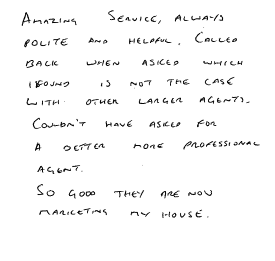 Amazing Service, always
polite and helpful. Called
back when asked which
ifound is not the case
with other larger agents.
Couldn't have asked for
a better more professional
agent.
So good they are now
marketing my house.